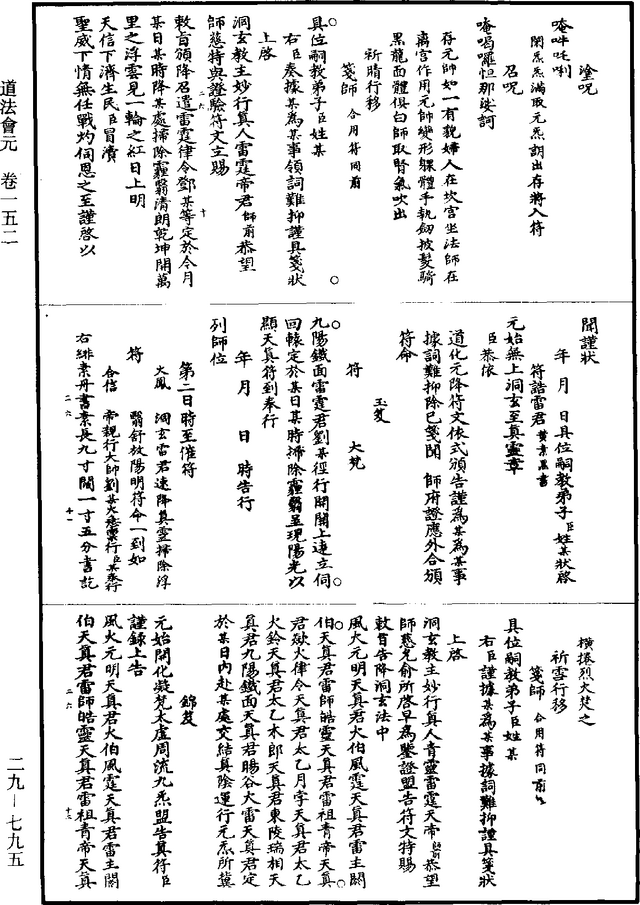 塗呪
唵吽吒唎
閉炁炁滿取元炁朗出存將入符
召呪
唵啒囉怛那娑訶
存元師如一有貌婦人在坎宮坐法師在
离宮作用元師變形躶體手執劒披髮騎
黑龍面體俱白師取腎氣吹出
祈晴行移
箋師 合用符同前
具位嗣教弟子臣姓某
右臣奏據某爲某事領詞難抑謹具箋狀
上啓
洞玄教主妙行真人雷霆帝君師前恭望
師慈特與證驗符文立賜
敕旨頒降召遣雷霆律令鄧某等定於今月
某日某時降某處掃除霾翳清朗乾坤開萬
里之浮雲見一輪之紅日上明
天信下濟生民臣冒瀆
聖威下情無任戰灼伺恩之至謹啓以
聞謹狀
年 月 日具位嗣教弟子臣姓某狀啓
符誥雷君 黃素墨書
元始無上洞玄至真靈章
臣恭依
道化元降符文依式頒告謹爲某爲某事
據詞難抑除已箋聞 師府證應外合頒
符命
玉笈
符 大梵
九陽鐵面雷霆君劉某徑行開闢上達立伺
回轅定於某日某時掃除霾翳呈現陽光以
顯天真符到奉行
年 月 日 時告行
列師位
第二日時至催符
火鳳 洞玄雷君速降真靈掃除浮
符 翳舒放陽明符命一到如
合信 帝親行大師劉某火急雲行臣某奉行
右緋素丹書素長九寸闊一寸五分書訖
橫捲烈火焚之
祈雪行移
箋師 合用符同前
具位嗣教弟子臣姓某
右臣謹據某爲某事據詞難抑謹具箋狀
上啓
洞玄教主妙行真人青靈雷霆天帝師前恭望
師慈允俞所啓早爲鑒證盟告符文特賜
敕旨告降洞玄法中
風火元明天真君火伯風霆天真君雷主闕
伯天真君雷師皓靈天真君雷祖青帝天真
君歘火律令天真君太乙月孛天真君太乙
火鈴天真君太乙木郎天真君東陵瑞相天
真君九陽鐵面天真君暘谷大雷天真君定
於某日內赴某處交結真陰運行元炁所冀
錦笈
元始開化凝梵太虛周流九炁盟告真符臣
謹錄上告
風火元明天真君火伯風霆天真君雷主闕
伯天真君雷師皓靈天真君雷祖青帝天真
道法會元 卷一五二
二九－七九五